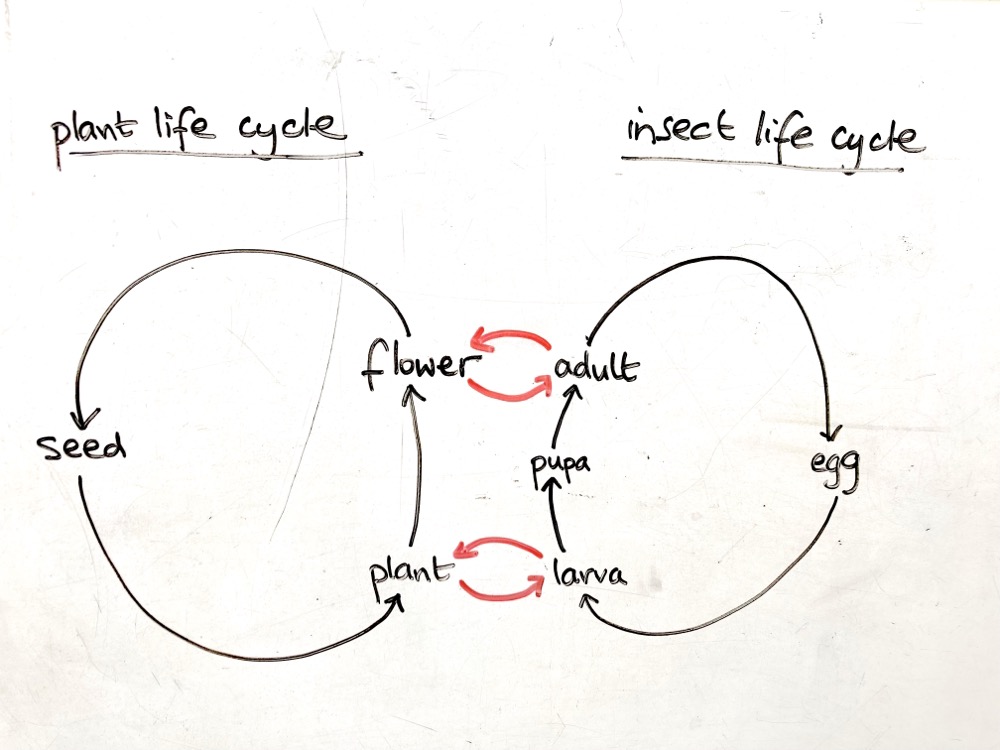 plant life cycle
insect life cycle
flower
adult
seed
pupa
egg
plant
larva